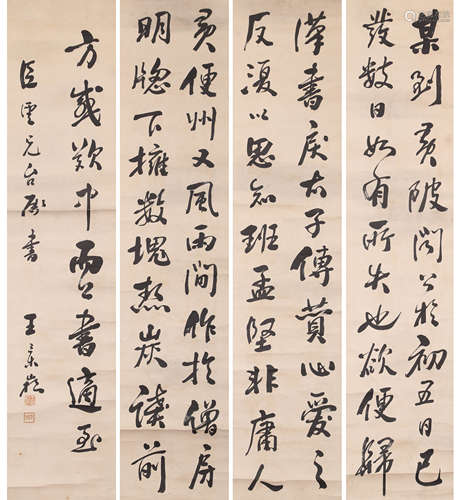 某到黄陂聞公於初五日已
發數日如有所失也欲便歸
漢書戾太子傳賛心愛之
反復以思知班孟堅非庸人
黄便州又風雨間作於僧房
明牕下擁數塊熬炭讀前
方感歎中而公書適至
元台屬書
王景崧